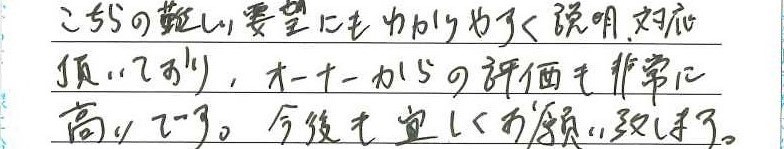 こちらの難しい要望にもわかりやすく説明、対応
頂いており、オーナーからの評価も非常に
高いです。今後も宜しくお願い致します。